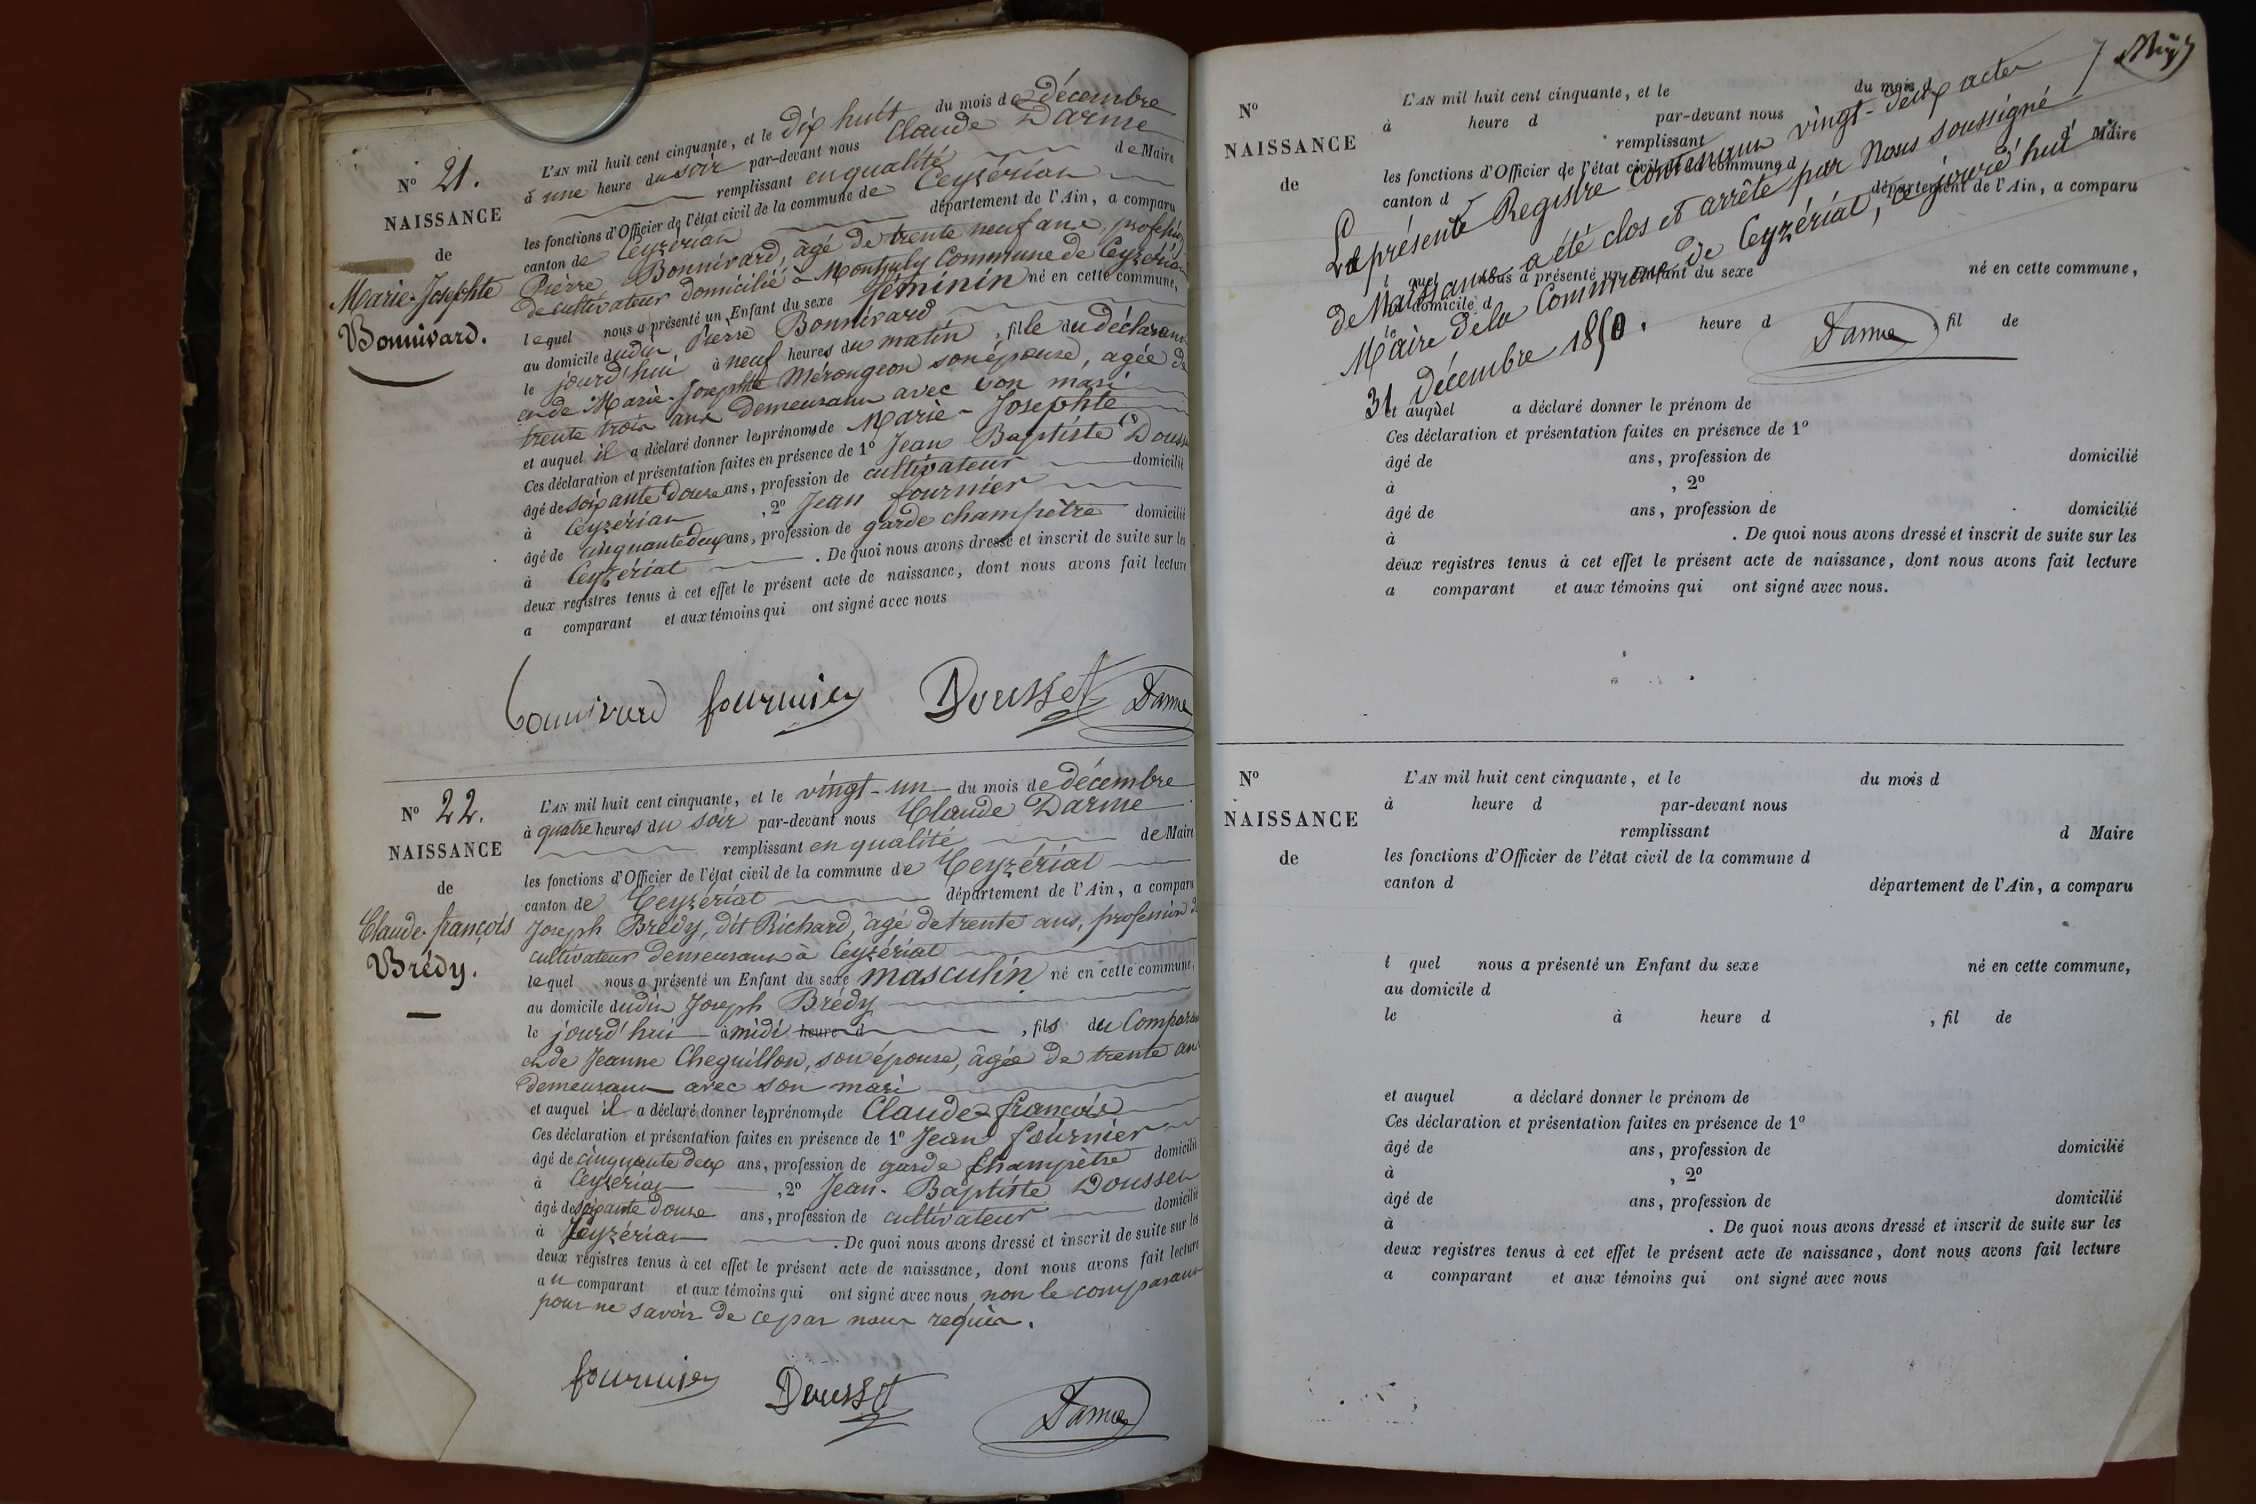 N° 21.
NAISSANCE
de
Marie-Josephte
Bonnivard.
L'AN mil huit cent cinquante, et le dix huit du mois de décembre
à une heure du soir par-devant nous Claude Darme
remplissant en qualité de Maire
les fonctions d'Officier de l'état civil de la commune de Ceyzériat
canton de Ceyzériat département de l'Ain, a comparu
Pierre Bonnivard, âgé de trente neuf ans, profession
de cultivateur domicilié à Montjuly Commune de Ceyzériat
lequel nous a présenté un Enfant du sexe féminin né en cette commune,
au domicile dudit Pierre Bonnivard
le jourd'hui à neuf heures du matin, fille du déclarant
et de Marie-Josephte Mérongeon son épouse, agée de
trente trois ans demeurant avec son mari
et auquel il a déclaré donner les prénoms de Marie-Josephte
Ces déclaration et présentation faites en présence de 1° Jean Baptiste Dousset
âgé de soixante douze ans, profession de cultivateur domicilié
à Ceyzériat, 2° Jean fournier
âgé de cinquante deux ans, profession de garde champêtre domicilié
à Ceyzériat. De quoi nous avons dressé et inscrit de suite sur les
deux registres tenus à cet effet le présent acte de naissance, dont nous avons fait lecture
a comparant et aux témoins qui ont signé avec nous
Bonnivard fournier Dousset Darme
N° 22.
NAISSANCE
de
Claude-françois
Brédy.
L'AN mil huit cent cinquante, et le vingt-un du mois de décembre
à quatre heures du soir par-devant nous Claude Darme
remplissant en qualité de Maire
les fonctions d'Officier de l'état civil de la commune de Ceyzériat
canton de Ceyzériat département de l'Ain, a comparu
Joseph Brédy, dit Richard, âgé de trente ans, profession de
cultivateur demeurant à Ceyzériat
lequel nous a présenté un Enfant du sexe masculin né en cette commune,
au domicile dudit Joseph Brédy
le jourd'hui à midi heure d, fils du Comparant
et de Jeanne Cheguillon, son épouse, âgée de trente ans
demeurant avec son mari
et auquel il a déclaré donner les prénoms de Claude-françois
Ces déclaration et présentation faites en présence de 1° Jean fournier
âgé de cinquante deux ans, profession de garde champêtre domicilié
à Ceyzériat, 2° Jean-Baptiste Dousset
âgé de soixante douze ans, profession de cultivateur domicilié
à Ceyzériat. De quoi nous avons dressé et inscrit de suite sur les
deux registres tenus à cet effet le présent acte de naissance, dont nous avons fait lecture
au comparant et aux témoins qui ont signé avec nous non le comparant
pour ne savoir de ce par nous requis.
fournier Dousset Darme
N°
NAISSANCE
de
L'AN mil huit cent cinquante, et le du mois d
à heure d par-devant nous
remplissant d Maire
les fonctions d'Officier de l'état civil de la commune d
canton d département de l'Ain, a comparu
l quel nous a présenté un Enfant du sexe né en cette commune,
au domicile d
le heure d, fil de
Le présent Registre contenant vingt-deux actes
de Naissance a été clos et arrêté par Nous soussigné
Maire de la Commune de Ceyzériat, ce jourd'hui
31 Décembre 1850.
Darme
et auquel a déclaré donner le prénom de
Ces déclaration et présentation faites en présence de 1°
âgé de ans, profession de domicilié
à, 2°
âgé de ans, profession de domicilié
à. De quoi nous avons dressé et inscrit de suite sur les
deux registres tenus à cet effet le présent acte de naissance, dont nous avons fait lecture
a comparant et aux témoins qui ont signé avec nous.
N°
NAISSANCE
de
L'AN mil huit cent cinquante, et le du mois d
à heure d par-devant nous
remplissant d Maire
les fonctions d'Officier de l'état civil de la commune d
canton d département de l'Ain, a comparu
l quel nous a présenté un Enfant du sexe né en cette commune,
au domicile d
le à heure d, fil de
et auquel a déclaré donner le prénom de
Ces déclaration et présentation faites en présence de 1°
âgé de ans, profession de domicilié
à, 2°
âgé de ans, profession de domicilié
à. De quoi nous avons dressé et inscrit de suite sur les
deux registres tenus à cet effet le présent acte de naissance, dont nous avons fait lecture
a comparant et aux témoins qui ont signé avec nous